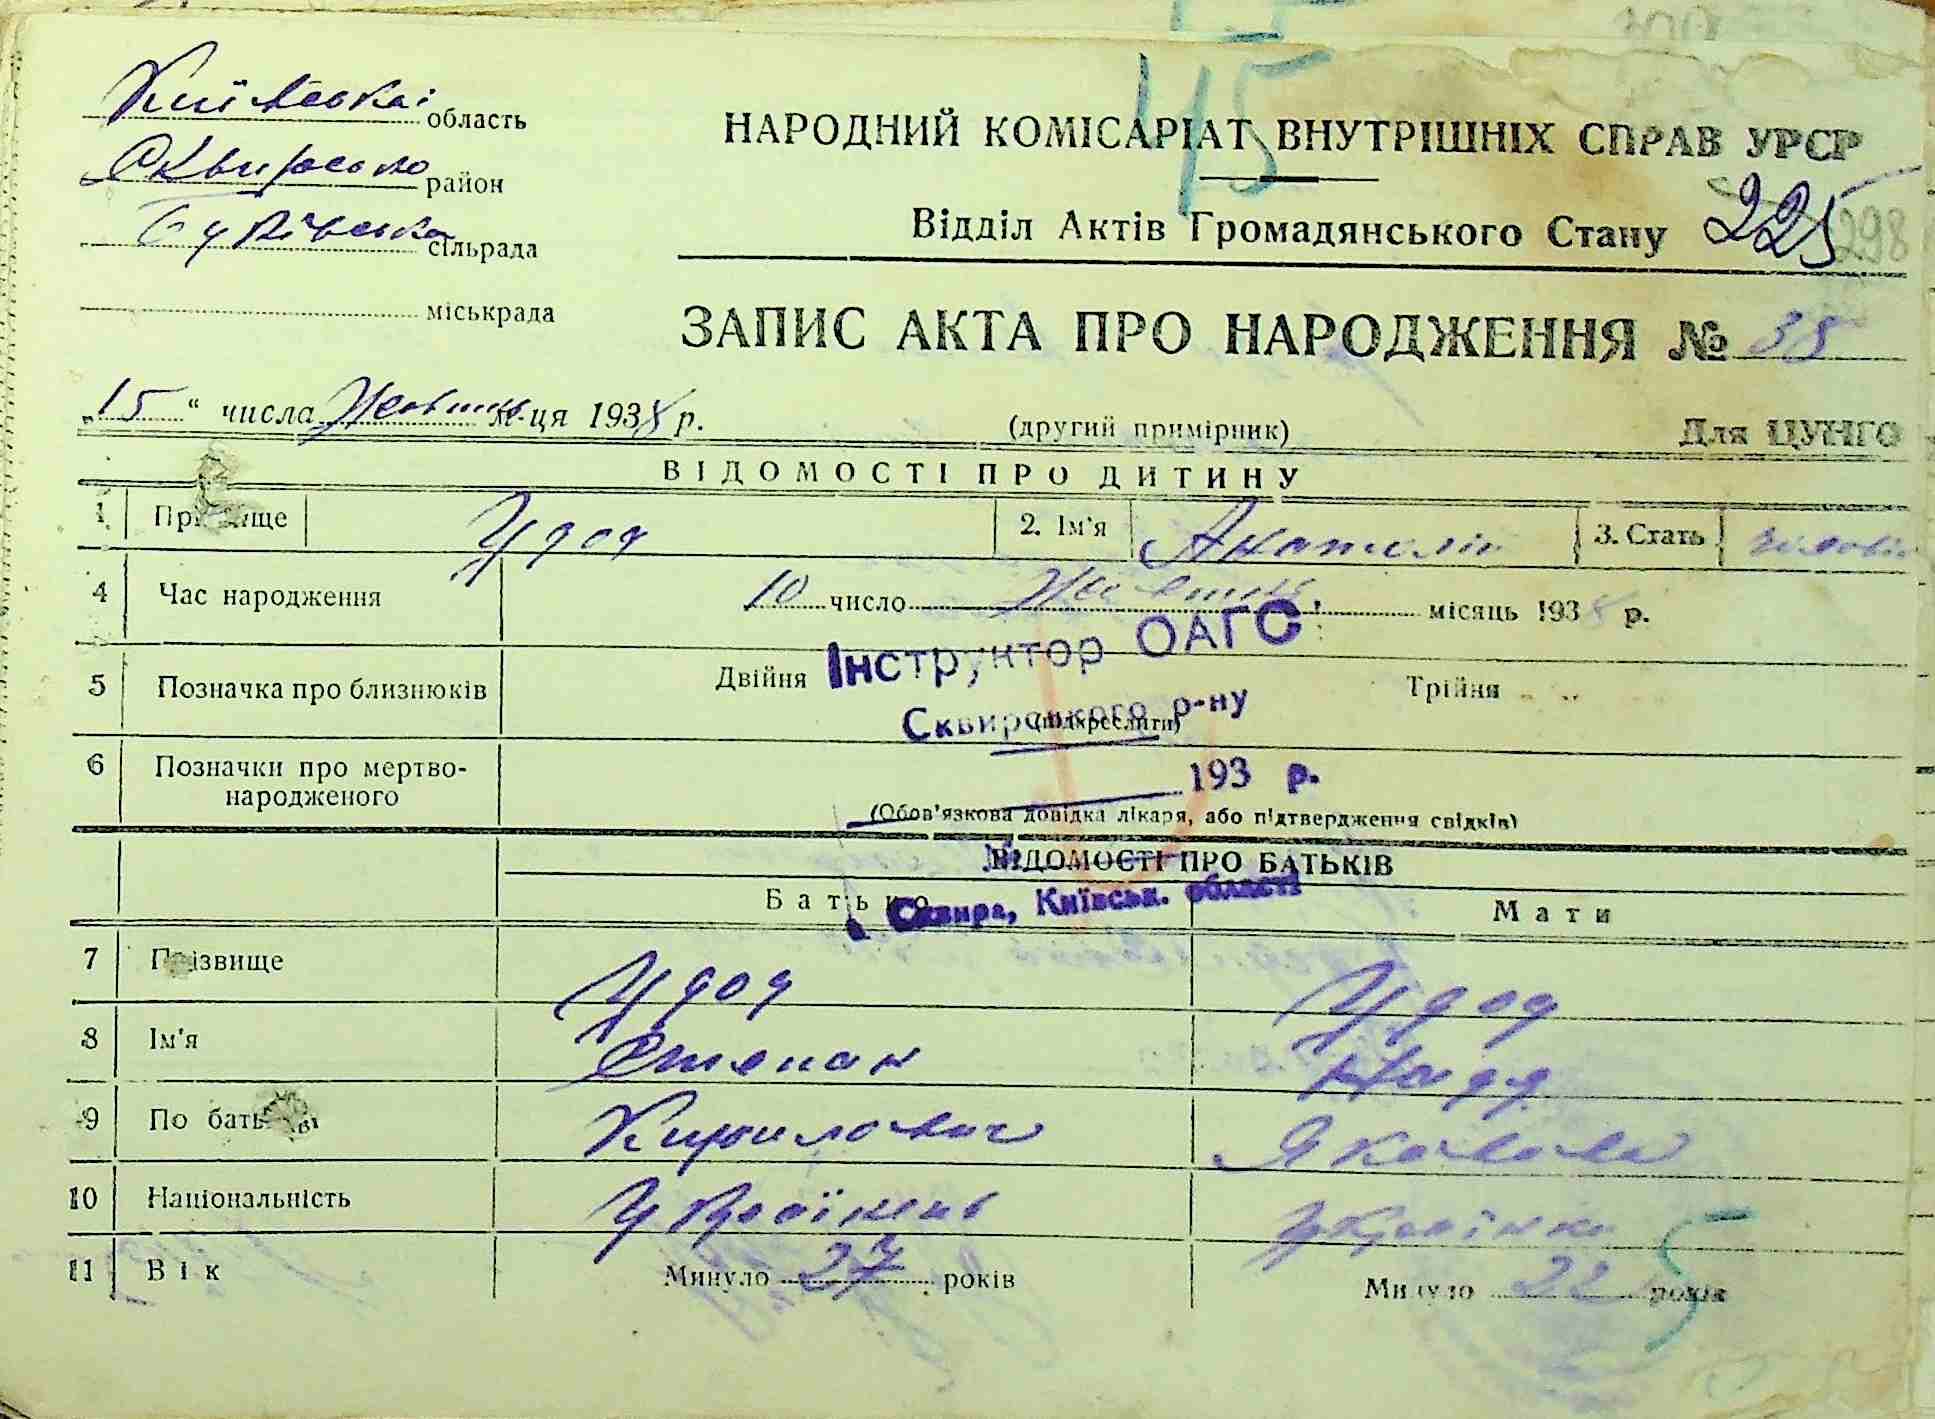 Київська область
Сквирсько район
Буківська сільрада
міськрада
45
НАРОДНИЙ КОМІСАРІАТ ВНУТРІШНІХ СПРАВ УРСР
Відділ Актів Громадянського Стану 225 298
ЗАПИС АКТА ПРО НАРОДЖЕННЯ № 38
„15“ числа Жовтня м-ця 1938 р.
(другий примірник)
Для ЦУНГО
ВІДОМОСТІ ПРО ДИТИНУ
1 Прізвище Удод 2. Ім'я Анатолій 3. Стать
4 Час народження 10 число Жовтня місяць 1938 р.
Інструктор ОАГС
5 Позначка про близнюків Двійня Трійня
Сквирського р-ну
(підкреслити)
6 Позначки про мертво-
народженого
193 р.
(Обов'язкова довідка лікаря, або підтвердження свідків)
ВІДОМОСТІ ПРО БАТЬКІВ
Батько Мати
Сквира, Київськ. області
7 Прізвище Удод Удод
8 Ім'я Степан Надя
9 По батькові Кирилович Яковлева
10 Національність Українець Українка
11 Вік Минуло 27 років Минуло 22 років
5